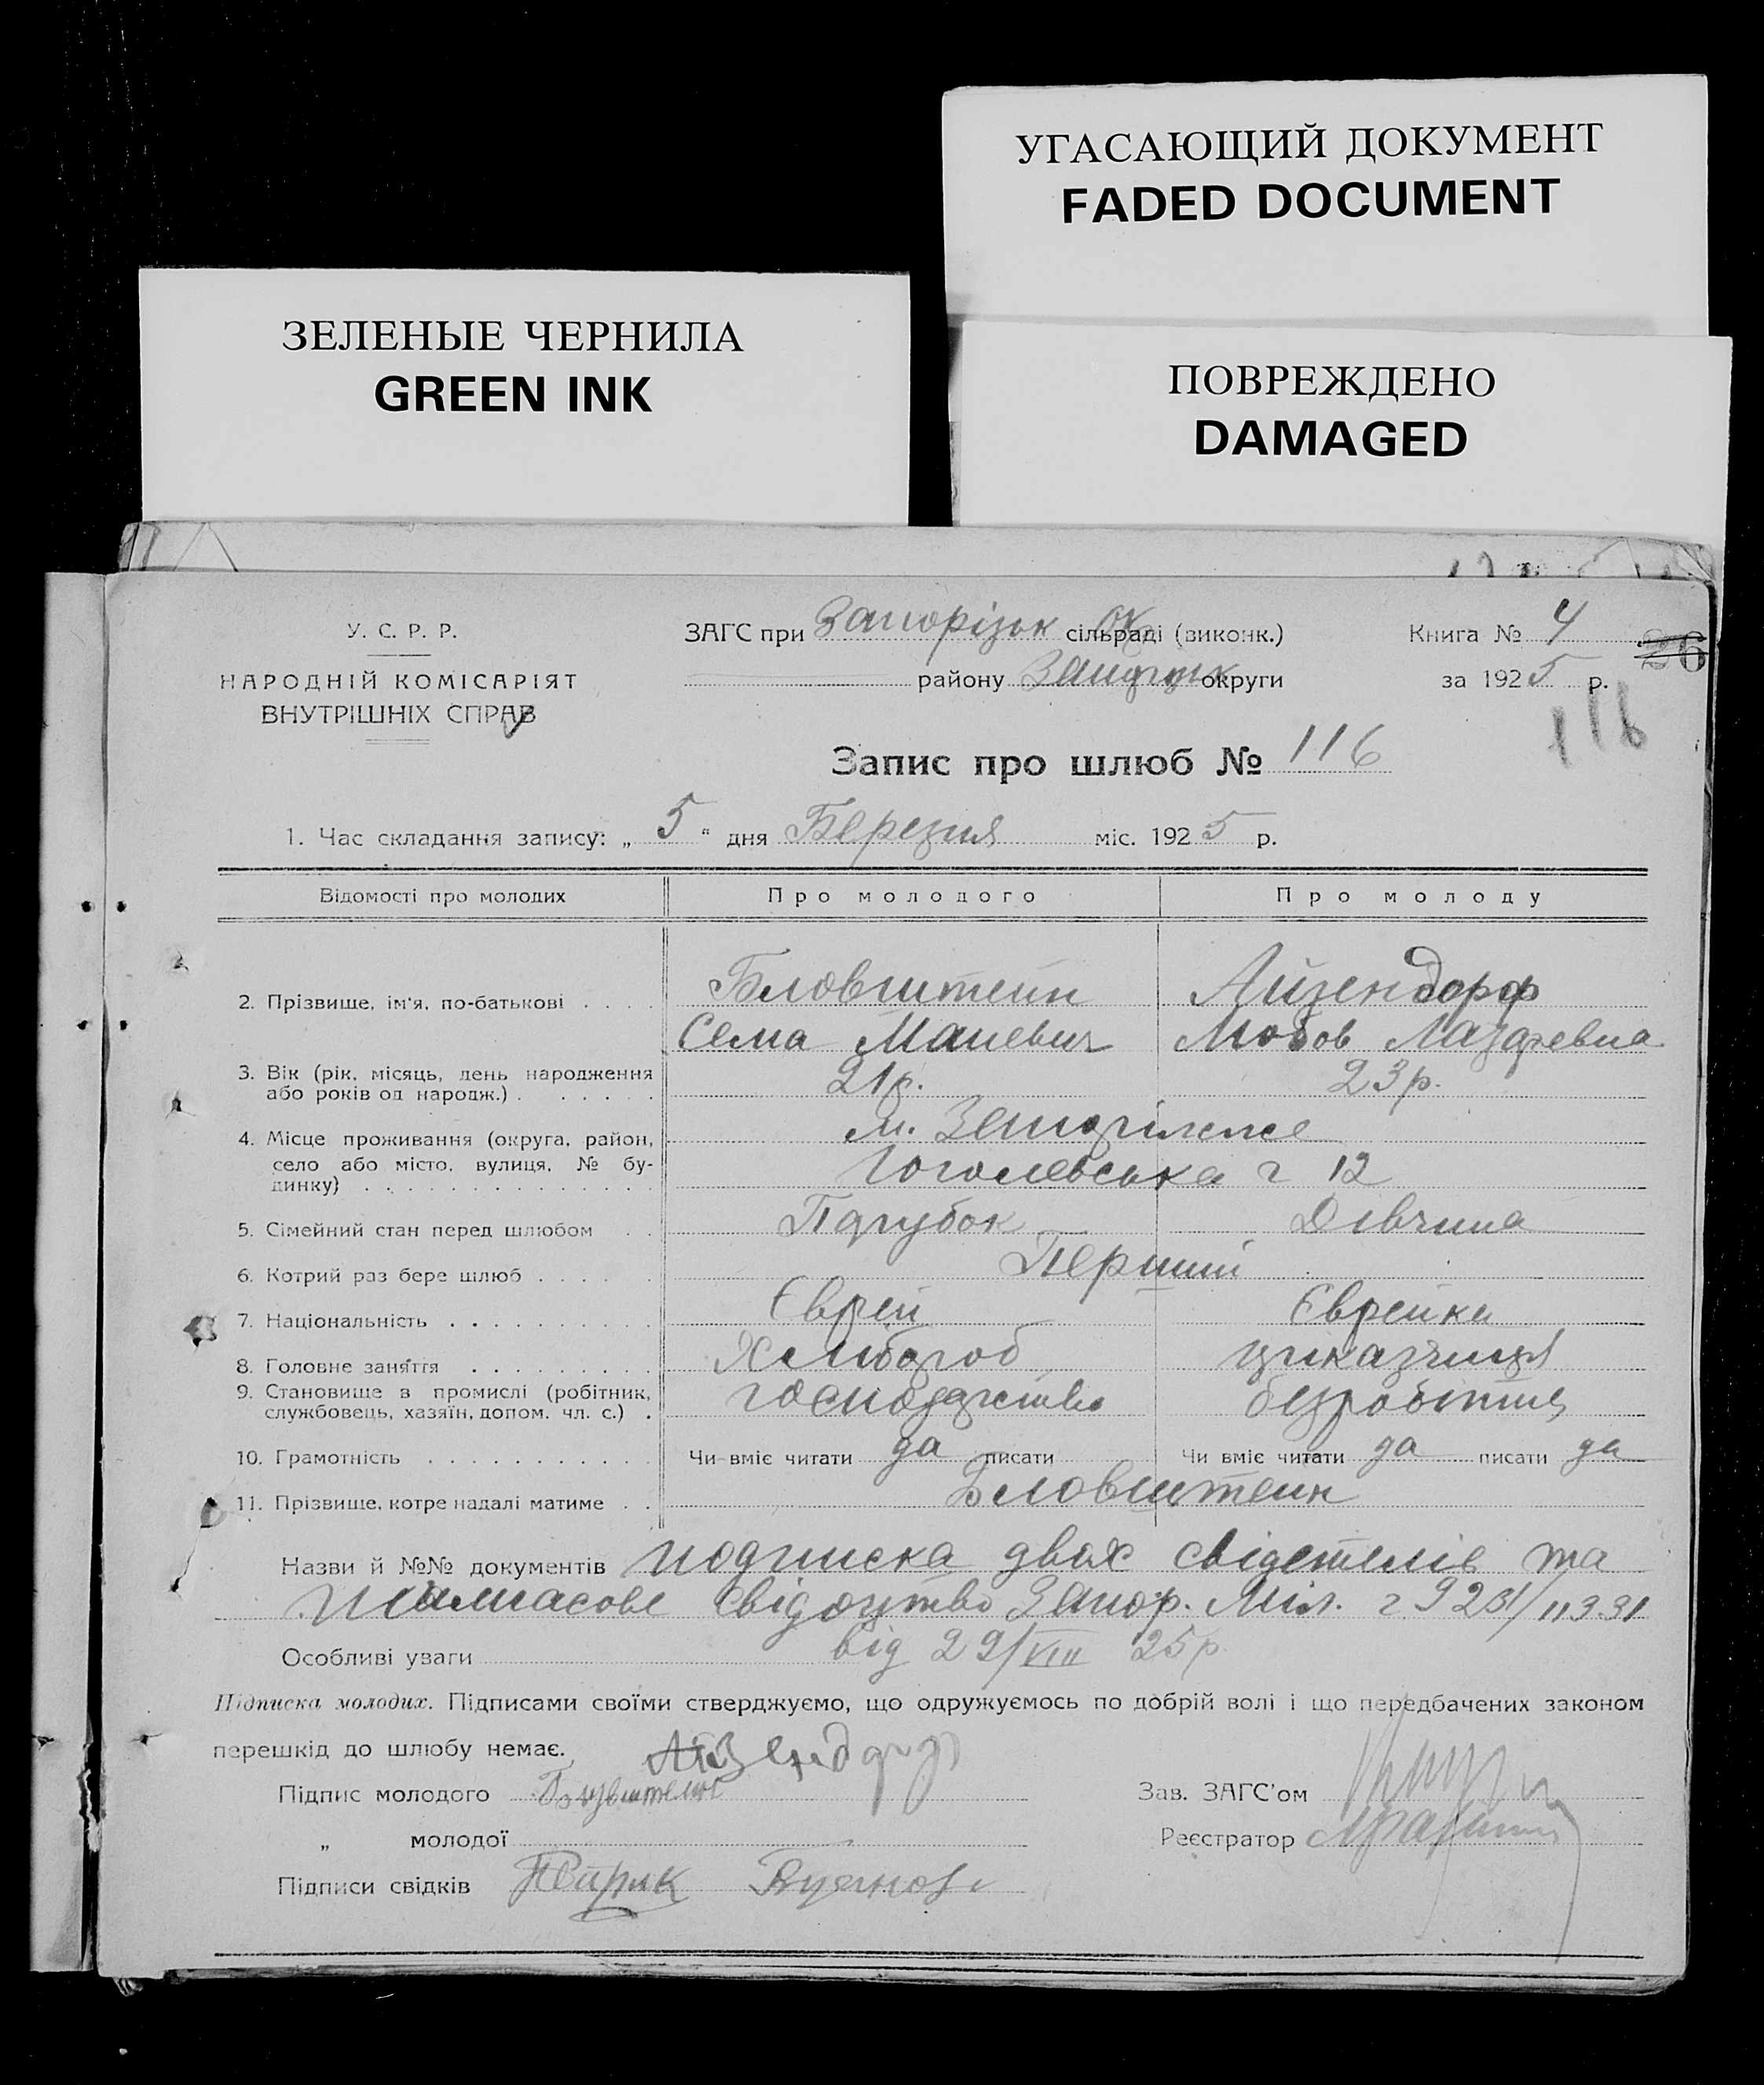 УГАСАЮЩИЙ ДОКУМЕНТ
FADED DOCUMENT
ЗЕЛЕНЫЕ ЧЕРНИЛА
GREEN INK
ПОВРЕЖДЕНО
DAMAGED
У. С. Р. Р.
НАРОДНІЙ КОМІСАРІЯТ
ВНУТРІШНІХ СПРАВ
ЗАГС при Запорізьк Ок сільраді (виконк.)
району округи
Книга № 4
26
за 1925 р.
116
Запис про шлюб № 116
1. Час складання запису: „ 5 " дня Березня міс. 1925 р.
Відомості про молодих Про молодого Про молоду
2. Прізвище, ім'я, по-батькові . . . . Бловштейн Айзендорф
Сема Маневич Любов Лазаревна
3. Вік (рік, місяць, день народження або років од народж.) . . . . . . 21р. 23р.
4. Місце проживання (округа, район, село або місто, вулиця, № будинку) . . . м. Запоріжже
Гоголевська 12
5. Сімейний стан перед шлюбом . . Парубок Дівчина
6. Котрий раз бере шлюб . . . . . Перший
7. Національність . . . . . . . . . Єврей Єврейка
8. Головне заняття . . . . . . . . Хлібороб
9. Становище в промислі (робітник, службовець, хазяїн, допом. чл. с.) .
10. Грамотність . . . . . . . . . . Чи вміє читати да писати Чи вміє читати да писати да
11. Прізвище, котре надалі матиме . . Бловштейн
Назви й №№ документів подписка двох свідетелів та
свідоцтво Запор. Міл.
від 29/VIII 25р
Особливі уваги
Підписка молодих. Підписами своїми стверджуємо, що одружуємось по добрій волі і що передбачених законом
перешкід до шлюбу немає.
Підпис молодого
„ молодої
Підписи свідків
Зав. ЗАГС'ом
Реєстратор